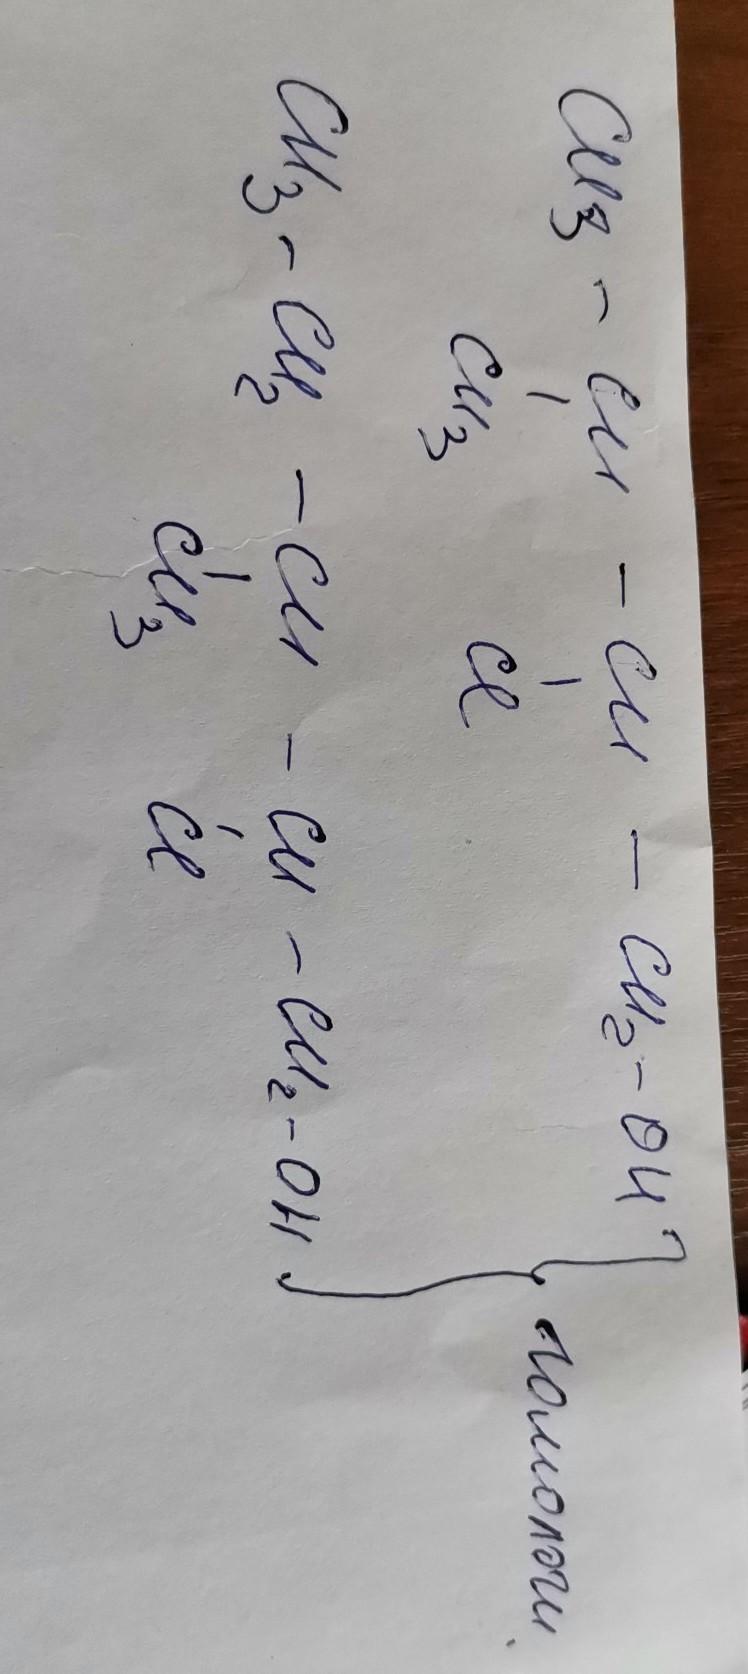 CH3 - CH - CH - CH2 - OH
CH3 Cl
CH3 - CH2 - CH - CH - CH2 - OH
CH3 Cl
гомологи